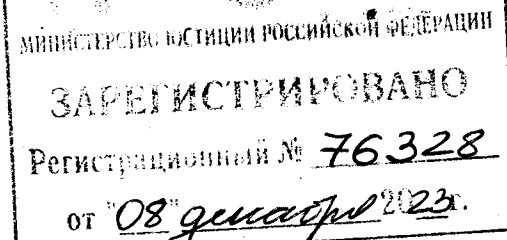 МИНИСТЕРСТВО ЮСТИЦИИ РОССИЙСКОЙ ФЕДЕРАЦИИ
ЗАРЕГИСТРИРОВАНО
Регистрационный № 76328
от "08" декабря 2023г.